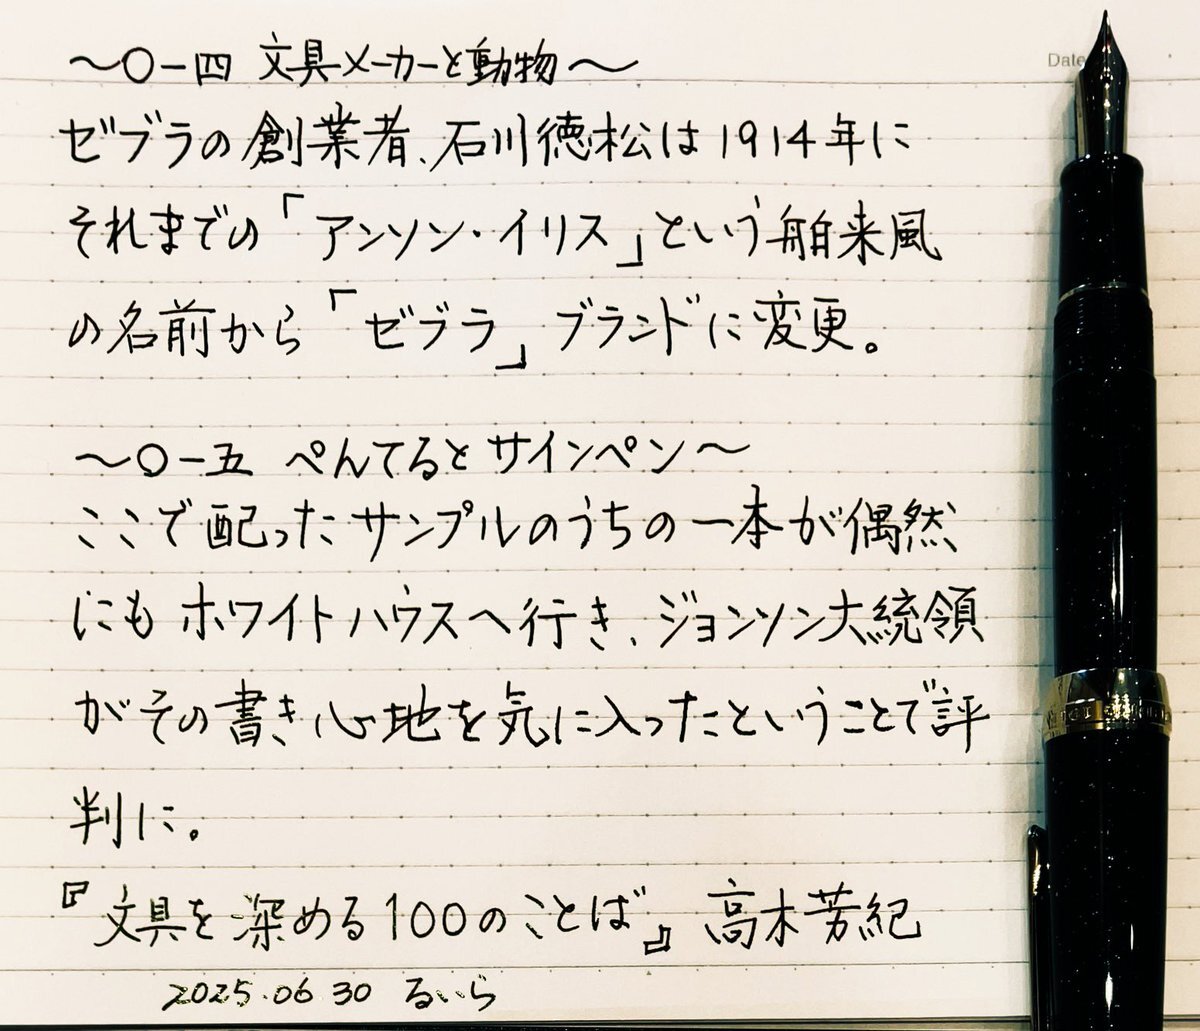 〜〇一四 文具メーカーと動物〜
Date
ゼブラの創業者、石川徳松は1914年に
それまでの「アンソン・イリス」という舶来風
の名前から「ゼブラ」ブランドに変更。
〜〇一五 ぺんてるとサインペン〜
ここで配ったサンプルのうちの一本が偶然
にもホワイトハウスへ行き、ジョンソン大統領
がその書き心地を気に入ったということで評
判に。
『文具を深める100のことば』高木芳紀
2025.06 30 るいら